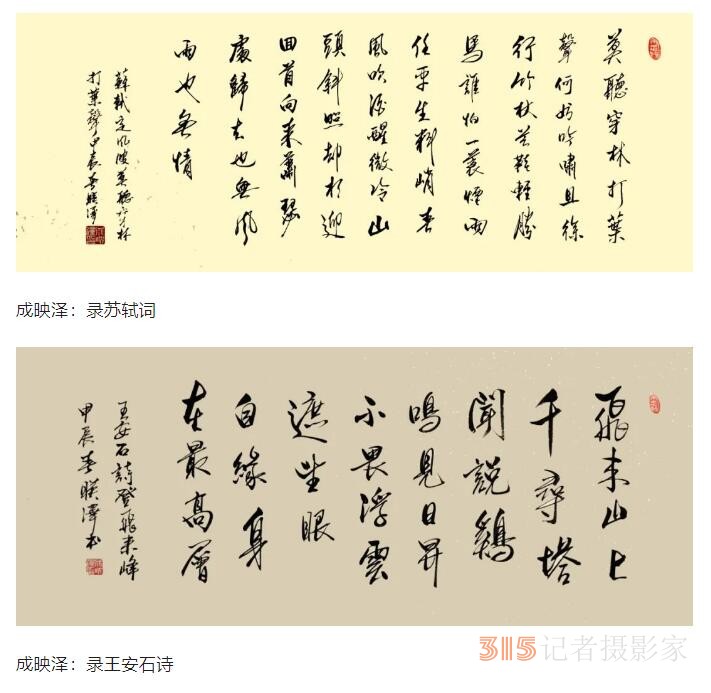 莫聽穿林打葉
聲何妨吟嘯且徐
行竹杖芒鞋輕勝
馬誰怕一蓑煙雨
任平生料峭春
風吹酒醒微冷山
頭斜照却相迎
回首向来蕭瑟
處歸去也無風
雨也無情
蘇軾定風波莫聽穿林
打葉聲甲辰春映澤
成映泽：录苏轼词
飛来山上
千尋塔
聞説鷄
鳴見日昇
不畏浮雲
遮望眼
自緣身
在最高層
王安石詩登飛来峰
甲辰春映澤书
315记者摄影家
成映泽：录王安石诗